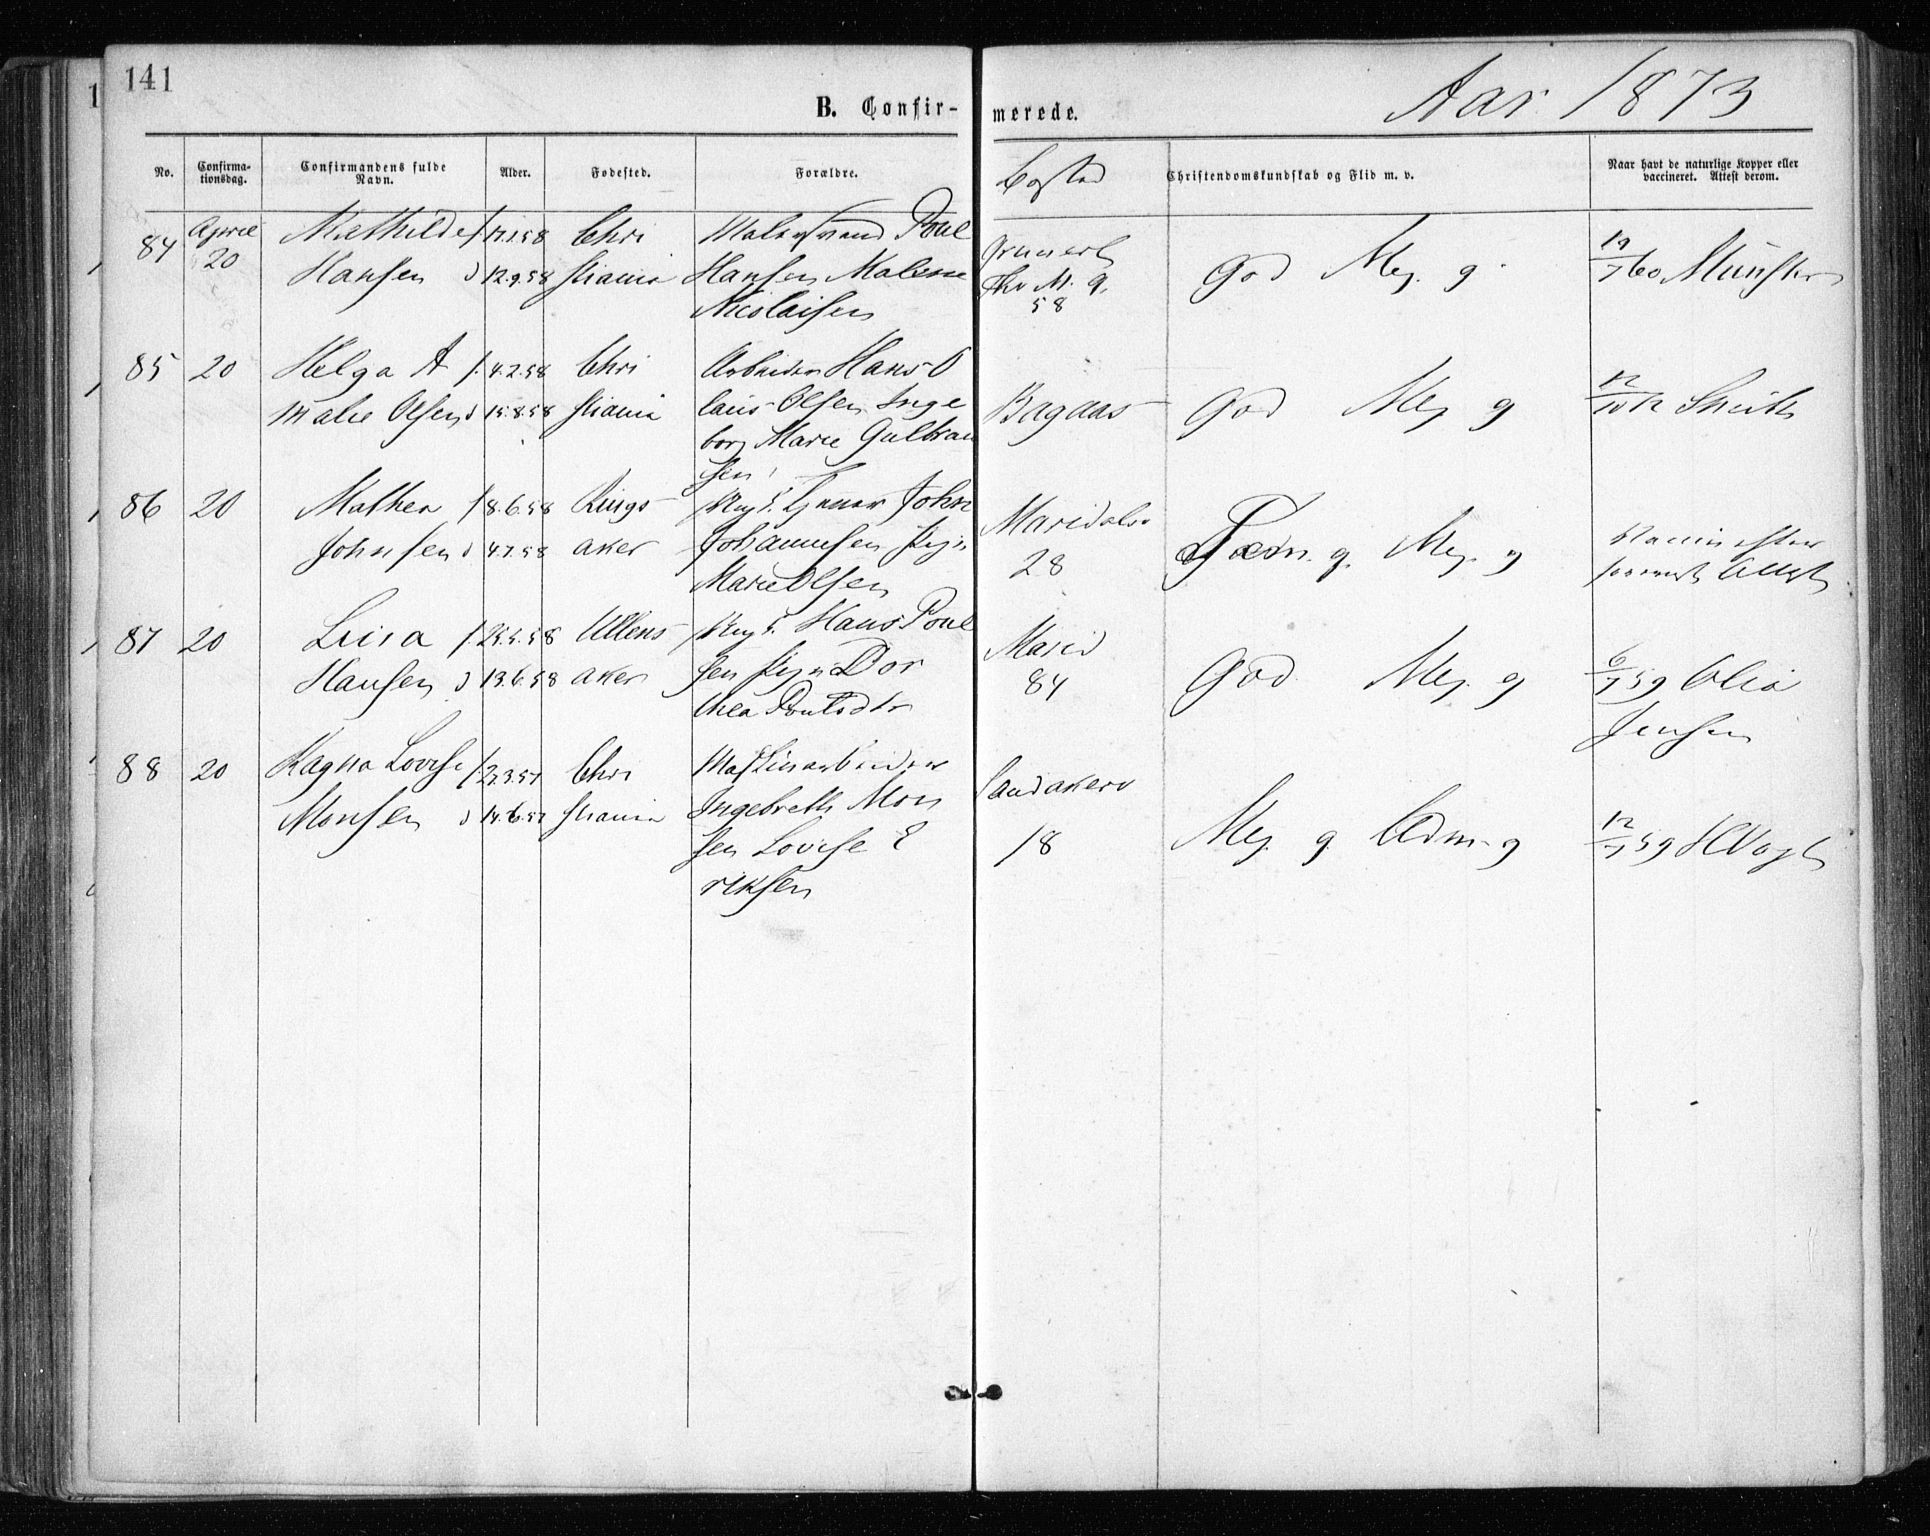 141
B. Confir-
merede.
Aar 1873
No.
Confirma-
tionsdag.
Confirmandens fulde
Navn.
Alder.
Fødested.
Forældre.
Bosted
Christendomskundskab og Flid m. v.
Naar havt de naturlige Kopper eller
vaccineret. Attest derom.
84
April
20
Mathilde
Hansen
f. 17.1.58
d 12.9.58
Chri
stiania
Poul
Hansen Malene
Nicolaisen
58
God Meg. g
19/7 60
85
20
Helga A
malie Olsen
f. 4.2.58
d 15.8.58
Chri
stiania
Arbeider Hans O
laus Olsen Inge
borg Marie Gulbran
sen
Bagaas
God Meg g
86
20
Mathea
Johnsen
f 8.6.58
d 4.7.58
Rings-
aker
John
Johannesen
Marie Olsen
Maridalsv
28
Meg. g
87
20
Lina
Hansen
d 13.6.58
Ullens-
aker
Hans Poul
sen Dor
thea Poulsdtr
Marid
84
God Meg. g
6/7 59
Jensen
88
20
Ragna Lovise
Monsen
f. 27.3.57
d 14.6.57
Chri
stiania
Maskinarbeider
Ingebreth Mon
sen Lovise E
riksen
Sandakerv
18
Meg g
12/7 59 Vogt